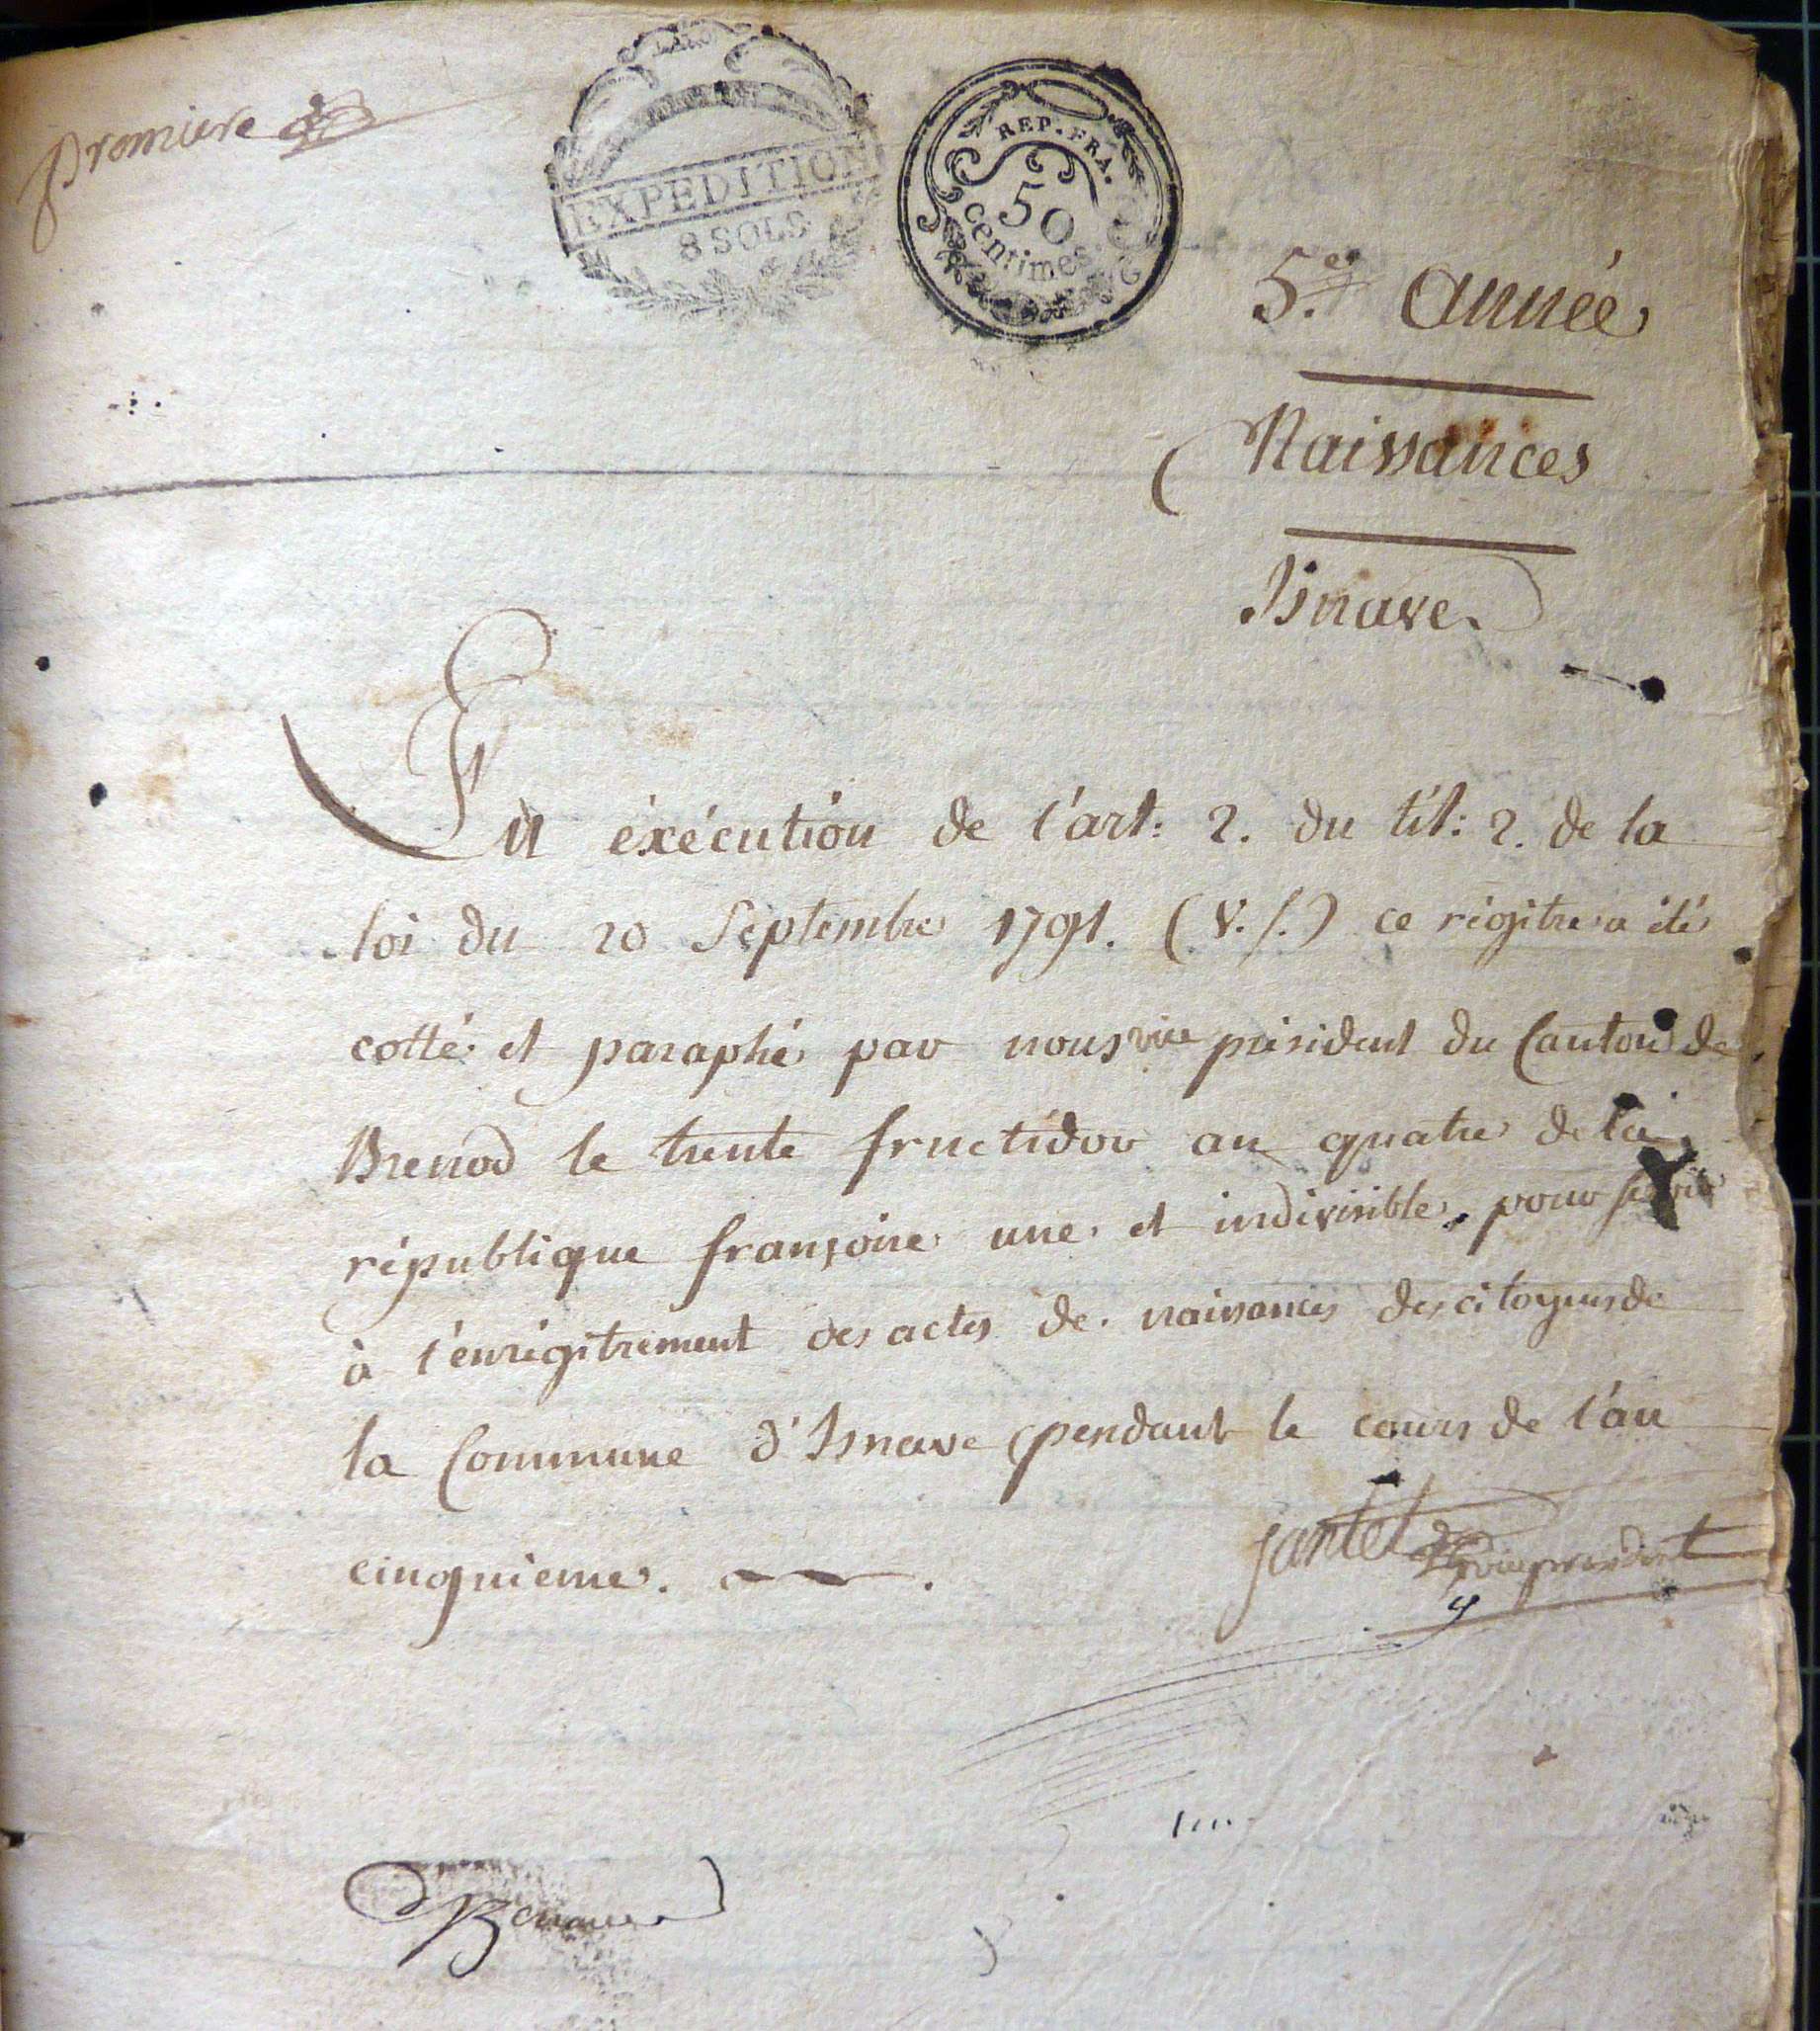 premiere
EXPEDITION
8 SOLS
REP. FRA.
50
centimes.
5.e année
Naissances
Isnave.
En éxécution de l'art: 2. du tit: 2. de la
loi du 20 Septembre 1791. (v. s.) ce régitre a été
cotté et paraphé par nous vice président du Canton de
Brenod le trente fructidor an quatre de la
république françoise une et indivisible, pour servir
à l'enrégitrement des actes de naissances des citoyens de
la Commune d'Isnave pendant le cours de l'an
cinquieme.
jantet vice president